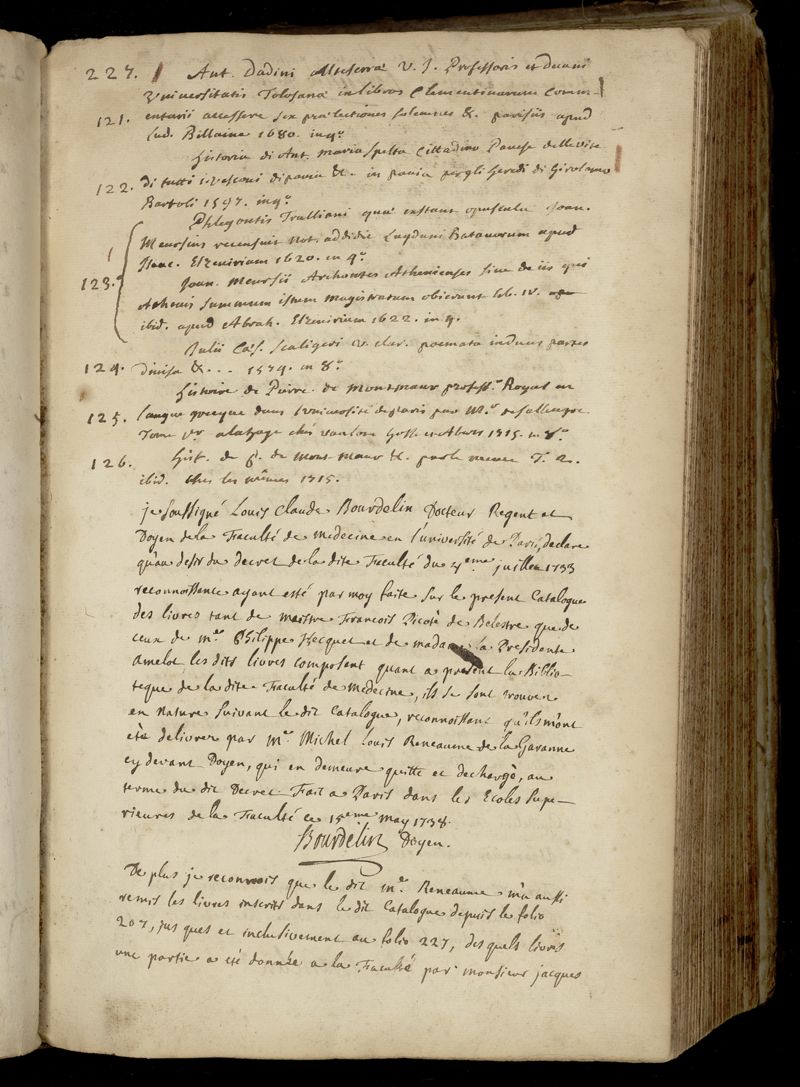 227. Ant. Dadini Alteserrae V. J. Professoris et Decani
Universitatis Tolosanae in libros Clementinarum Comm-
121. entarii accessere sex praelectiones solemnes &c. parisiis apud
Lud. Billaine 1680. in 4°.
Historia di Ant. Maria Spelta Cittadino Pavese delle vite
122. di tutti i vescovi di pavia &c. in pavia per gli heredi di Girolamo
Bartoli 1597. in 4°.
Phlegontis Tralliani quae exstant opuscula Joan.
Meursius recensuit Not. addidit Lugduni Batavorum apud
Isaac. Elzevirium 1620. in 4°.
123. Joan. Meursii Archontes Athenienses sive de iis qui
Athenis summum istum magistratum obierunt lib. IV.
ibid. apud Abrah. Elzevirium 1622. in 4.
Julii Caes. Scaligeri v. clar. poemata in duas partes
124. divisa &c... 1574. in 8°.
histoire de Pierre de Montmaur profess.r Royal en
125. langue grecque dans l'université de paris par Mr. de Sallengre
Tome 1er a la haye chés van lom Gosse et Alberts 1715. in 8°.
126. Hist. de P. de Mont maur &c. par le meme T. 2.
ibid. chés les mêmes 1715.
je soussigné Louis Claude Bourdelin Docteur Regent et
Doyen de la Faculté de medecine en l'université de Paris, declare
qu'au desir du decret de la dite Faculté du 4eme juillet 1733
reconnoissance ayant esté par moy faite sur le present Catalogue
des livres tant de maistre François Picoté de Belestre que de
ceux de mr. Philippe Hecquet et de madame la Presidente
Amelot, les dits livres composent quant a present la Biblio-
teque de la dite Faculté de medecine, ils se sont trouvez
en nature suivant le dit Catalogue, reconnoissant qu'ils m'ont
eté delivrez par mr. Michel Louis Reneaume de la Garanne
cy devant Doyen, qui en demeure quitte et dechargé, au
terme du dit Decret. Fait a Paris dans les Ecoles supe-
rieures de la Faculté ce 15eme may 1738.
Bourdelin Doyen.
De plus je reconnois que le dit mr. Reneaume m'a aussi
remis les livres inscrits dans le dit Catalogue depuis le folio
207, jusques et inclusivement au folio 227, des quels livres
une partie a eté donnée a la Faculté par monsieur jacques